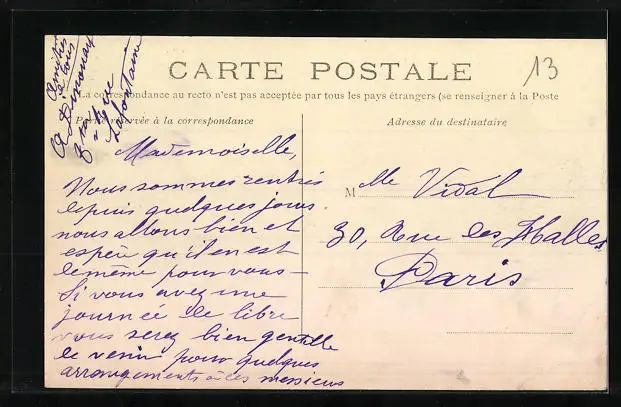 CARTE POSTALE
13
La correspondance au recto n'est pas acceptée par tous les pays étrangers (se renseigner à la Poste
Partie réservée à la correspondance
Adresse du destinataire
Mademoiselle,
Nous sommes rentrés
depuis quelques jours
nous allons bien et
espère qu'il en est
de même pour vous -
Si vous avez une
journée de libre
vous serez bien gentille
de venir pour quelques
arrangements à ces messieurs
Amitiés
à tous
rue
Lafontaine
Mlle Vidal
30, Rue des Halles
Paris